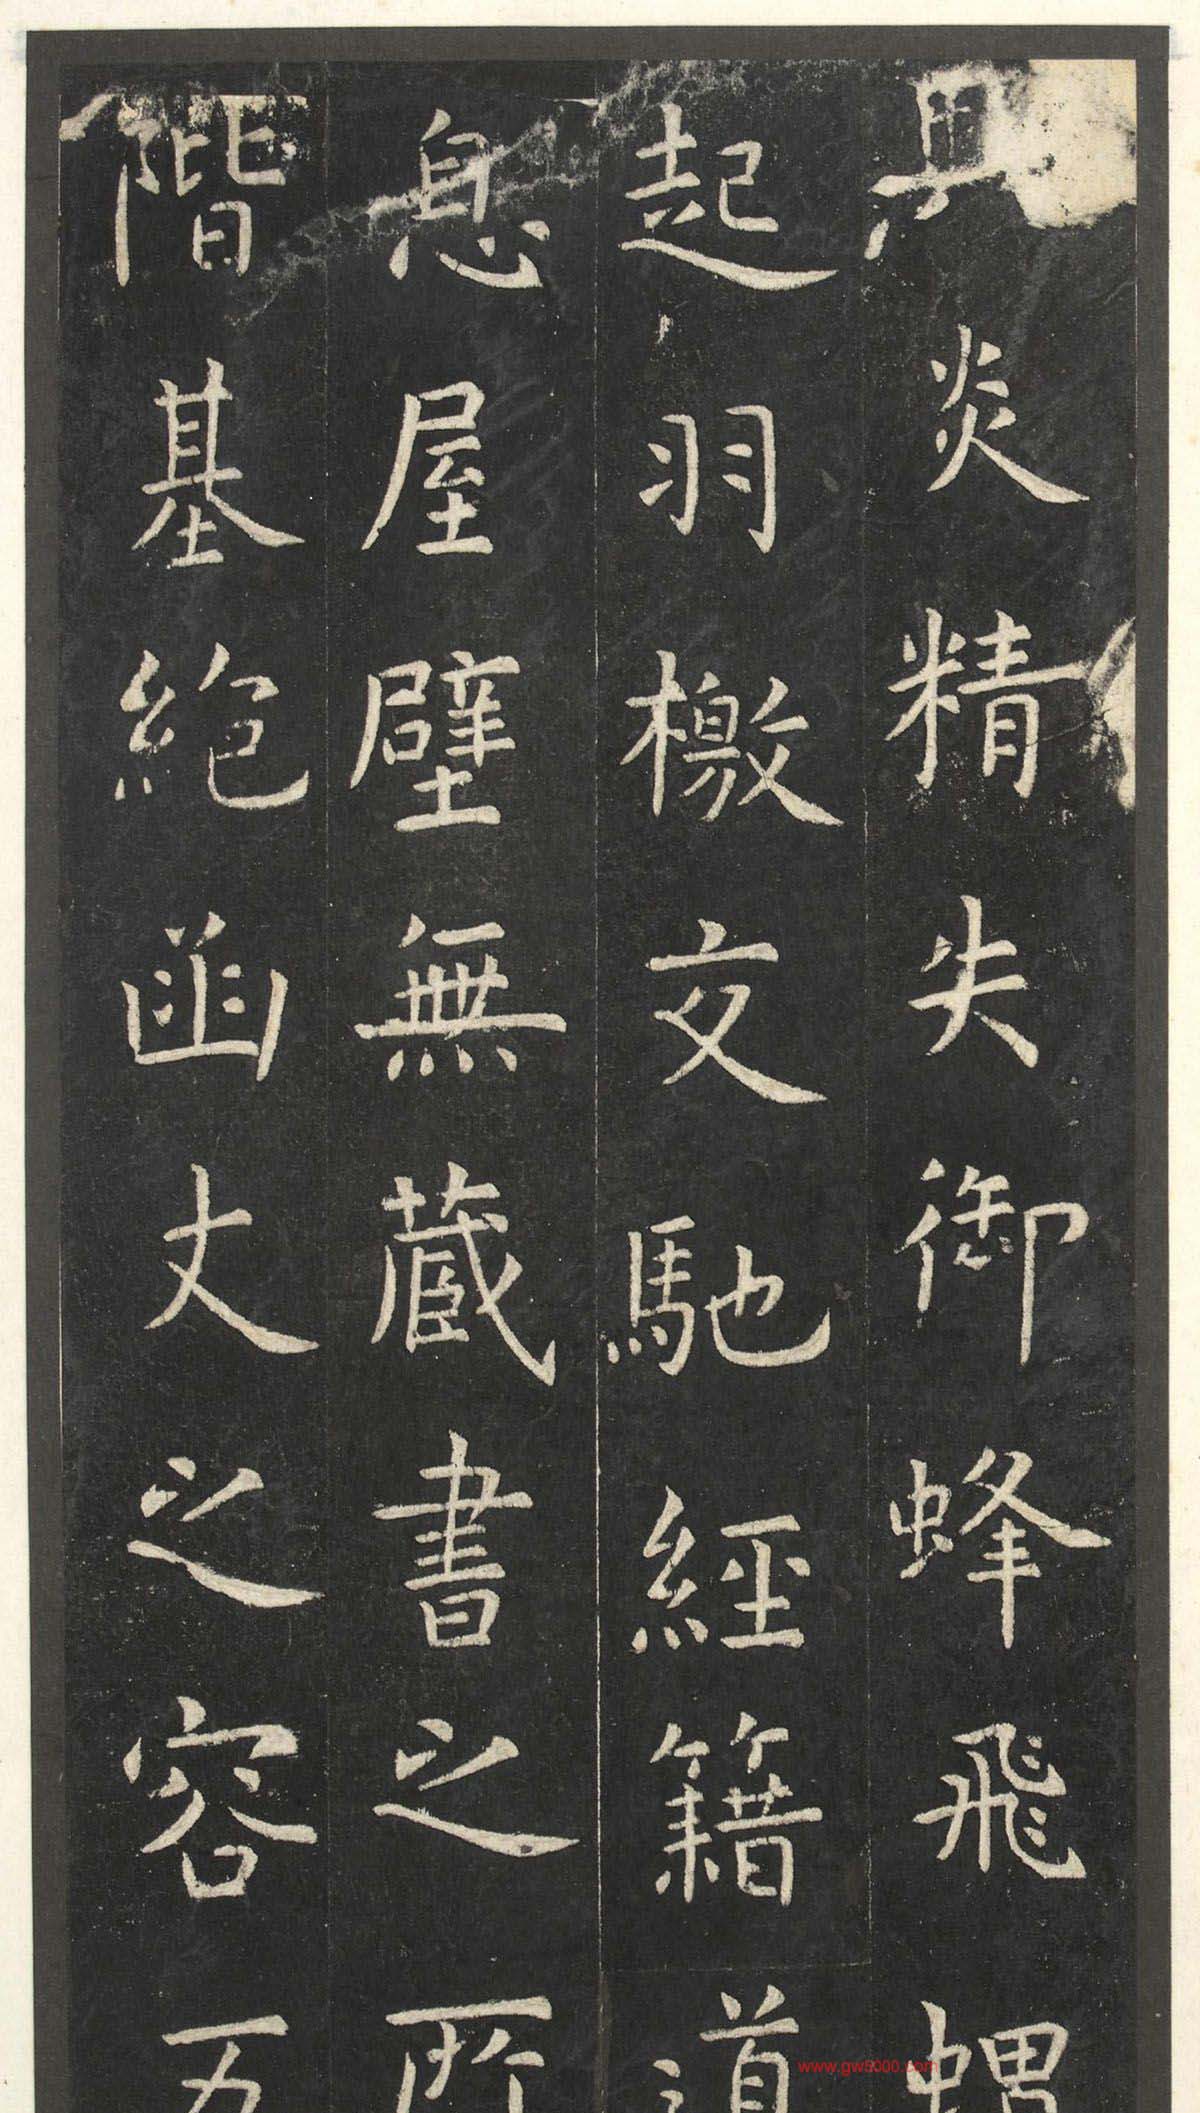 炎精失御蜂飛蝟
起羽檄交馳經籍道
息屋壁無藏書之所
階基絕函丈之容五
www.gw5000.com